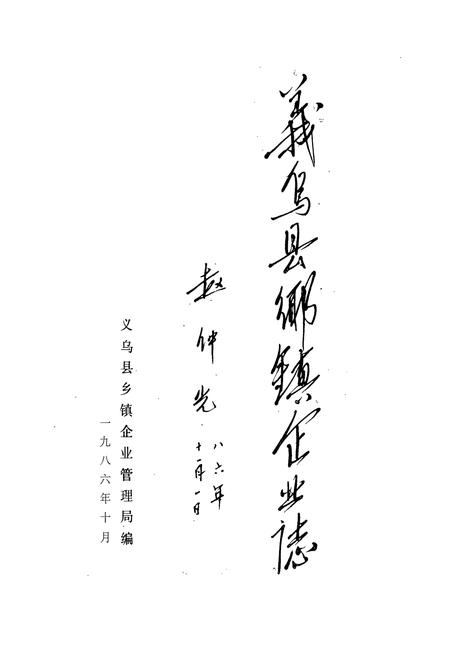 義乌县鄉鎮企业誌
赵仲光
八六年
十一月一日
义乌县乡镇企业管理局编
一九八六年十月